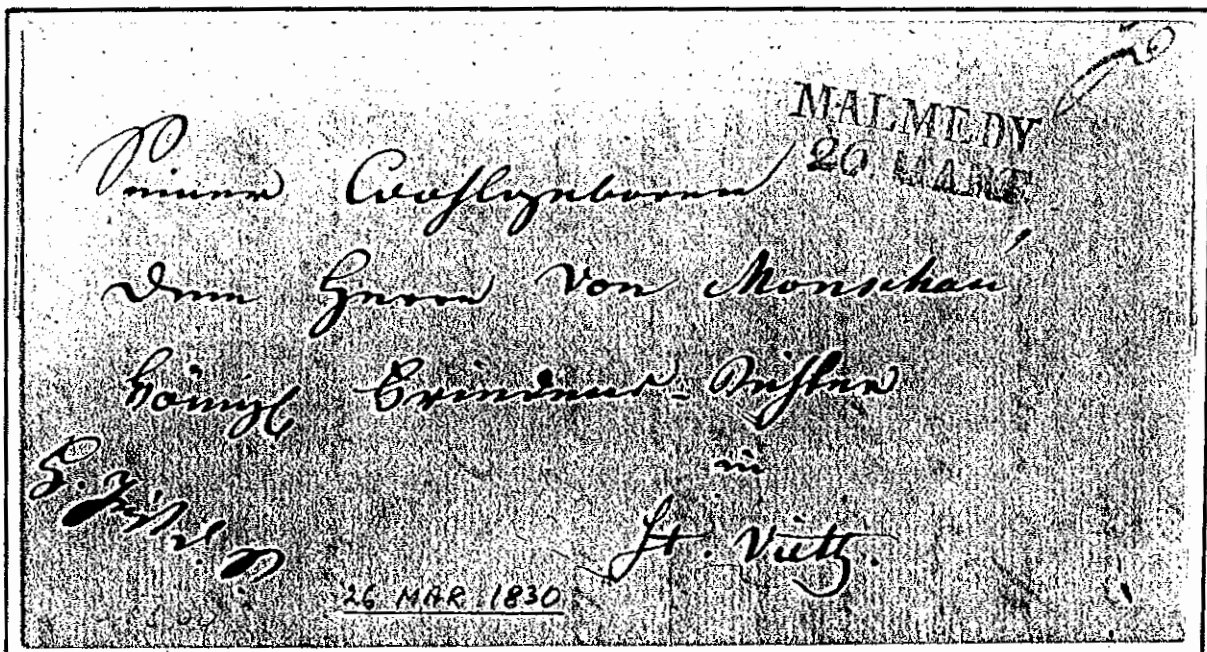 MALMEDY
26 MART
Seiner Wohlgeboren
Dem Herrn von Monschau,
Königl Friedens-Richter
in
St. Vieth.
26 MAR 1830